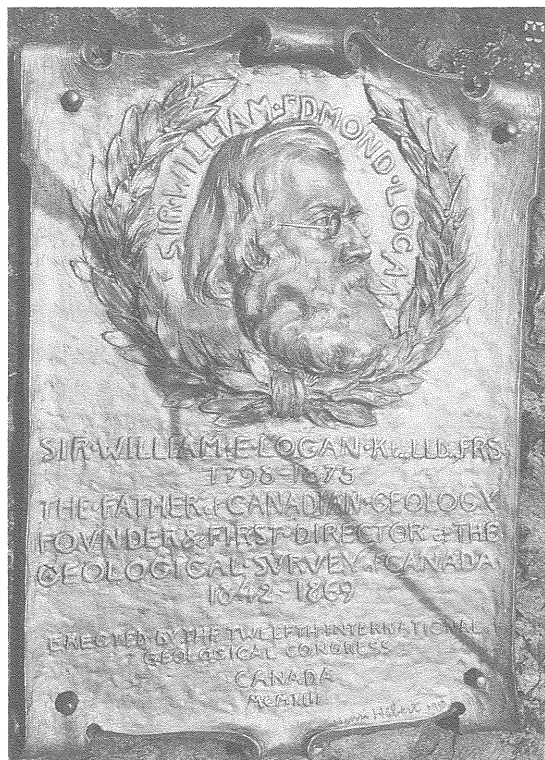 SIR·WILLIAM·EDMOND·LOGAN
SIR·WILLIAM·E·LOGAN·Kt., LLD., FRS.
1798-1875
THE·FATHER of CANADIAN·GEOLOGY
FOVNDER & FIRST·DIRECTOR of THE
GEOLOGICAL·SVRVEY of CANADA
1842-1869
ERECTED BY THE TWELFTH INTERNATIONAL
GEOLOGICAL CONGRESS
CANADA
MCMXIII
Hébert